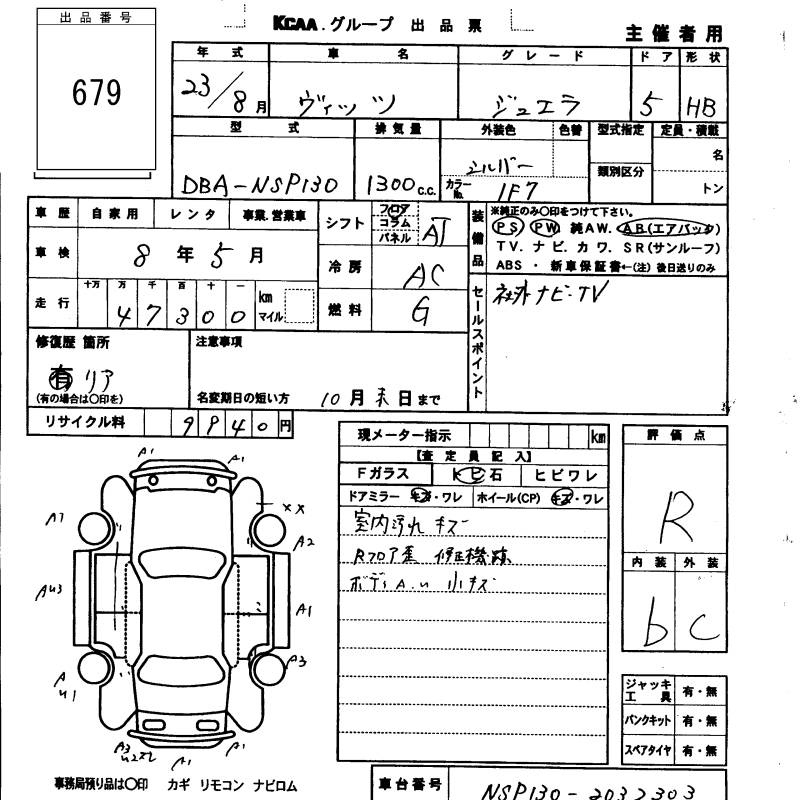 出品番号
679
KCAA.グループ 出品票
主催者用
年式 車名 グレード ドア 形状
23/8月 ヴィッツ ジュエラ 5 HB
型式 排気量 外装色 色替 型式指定 定員・積載
DBA-NSP130 1300c.c. シルバー 名
類別区分
カラーNo. 1F7 トン
車歴 自家用 レンタ 事業.営業車
シフト フロア コラム パネル AT
車検 8年5月
冷房 AC
走行 十万 万 千 百 十 一
47300 km マイル
燃料 G
装備品 ※純正のみ〇印をつけて下さい。
PS PW 純AW. AB(エアバッグ)
TV. ナビ. カワ. SR(サンルーフ)
ABS ・ 新車保証書←(注) 後日送りのみ
セールスポイント 社外ナビ・TV
修復歴 箇所
有 リア
(有の場合は〇印を)
注意事項
名変期日の短い方 10月末日まで
リサイクル料 9940円
現メーター指示 km
【査定員記入】
Fガラス トビ石 ヒビワレ
ドアミラー キズ・ワレ ホイール(CP) キズ・ワレ
室内汚れ キズ
Rフロア歪 修正機跡
ボディA.u 小キズ
評価点
R
内装 外装
b c
ジャッキ工具 有・無
パンクキット 有・無
スペアタイヤ 有・無
A1 A1
XX
A7 A2
Au3 A1
A u1 A3
A3 A1 A1
事務局預り品は〇印 カギ リモコン ナビロム
車台番号 NSP130-2032303